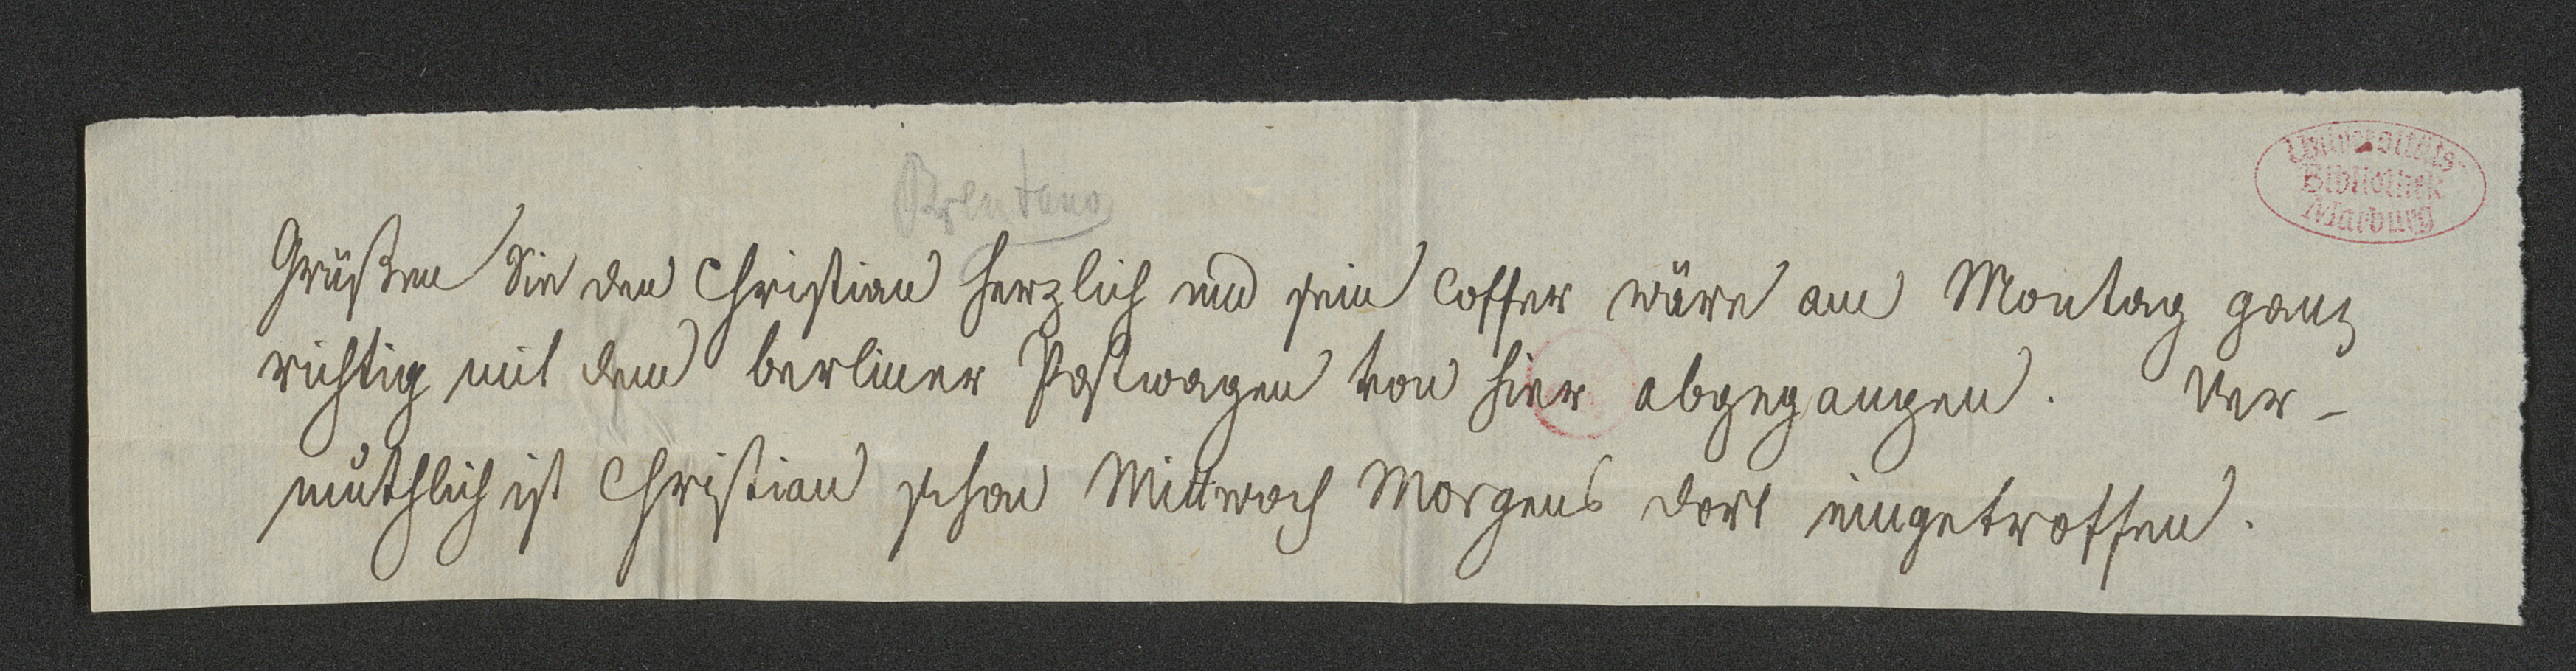 Universitäts-
Bibliothek
Marburg
Brentano
Grüßen Sie den Christian herzlich und sein Coffer wäre am Montag ganz
richtig mit dem berliner Postwagen von hier abgegangen. Ver-
muthlich ist Christian schon Mittwoch Morgens dort eingetroffen.